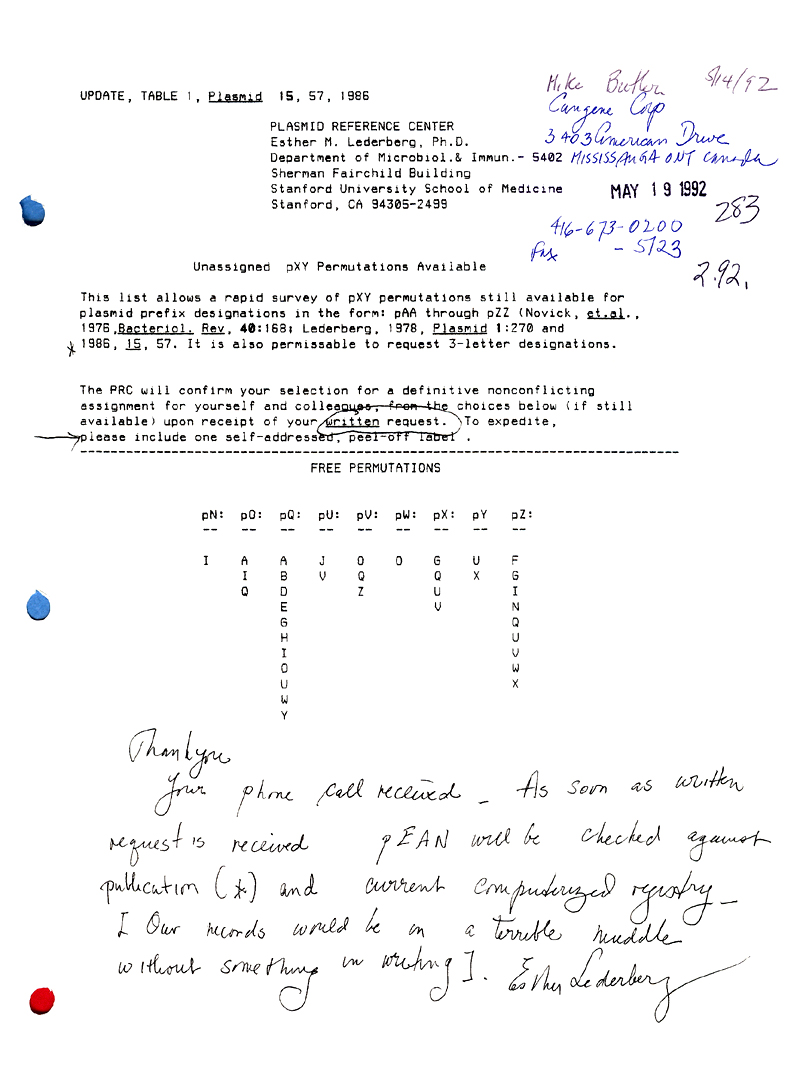 Mike Butler 5/14/92
UPDATE, TABLE 1, Plasmid 15, 57, 1986
Cangene Corp
3403 American Drive
MISSISSAUGA ONT Canada
PLASMID REFERENCE CENTER
Esther M. Lederberg, Ph.D.
Department of Microbiol.& Immun.- 5402
Sherman Fairchild Building
Stanford University School of Medicine
Stanford, CA 94305-2499
MAY 19 1992
283
416-673-0200
fax - 5123
2.92.
Unassigned pXY Permutations Available
This list allows a rapid survey of pXY permutations still available for
plasmid prefix designations in the form: pAA through pZZ (Novick, et.al.,
1976,Bacteriol. Rev, 40:168; Lederberg, 1978, Plasmid 1:270 and
* 1986, 15, 57. It is also permissable to request 3-letter designations.
The PRC will confirm your selection for a definitive nonconflicting
assignment for yourself and colleagues, from the choices below (if still
available) upon receipt of your written request. To expedite,
please include one self-addressed, peel-off label .
FREE PERMUTATIONS
pN: pO: pQ: pU: pV: pW: pX: pY pZ:
-- -- -- -- -- -- -- -- --
I A A J O O G U F
I B V Q Q X G
Q D Z U I
E V N
G Q
H U
I V
O W
U X
W
Y
Thank you
Your phone call received - As soon as written
request is received pEAN will be checked against
publication (*) and current computerized registry -
[ Our records would be in a terrible muddle
without something in writing ]. Esther Lederberg